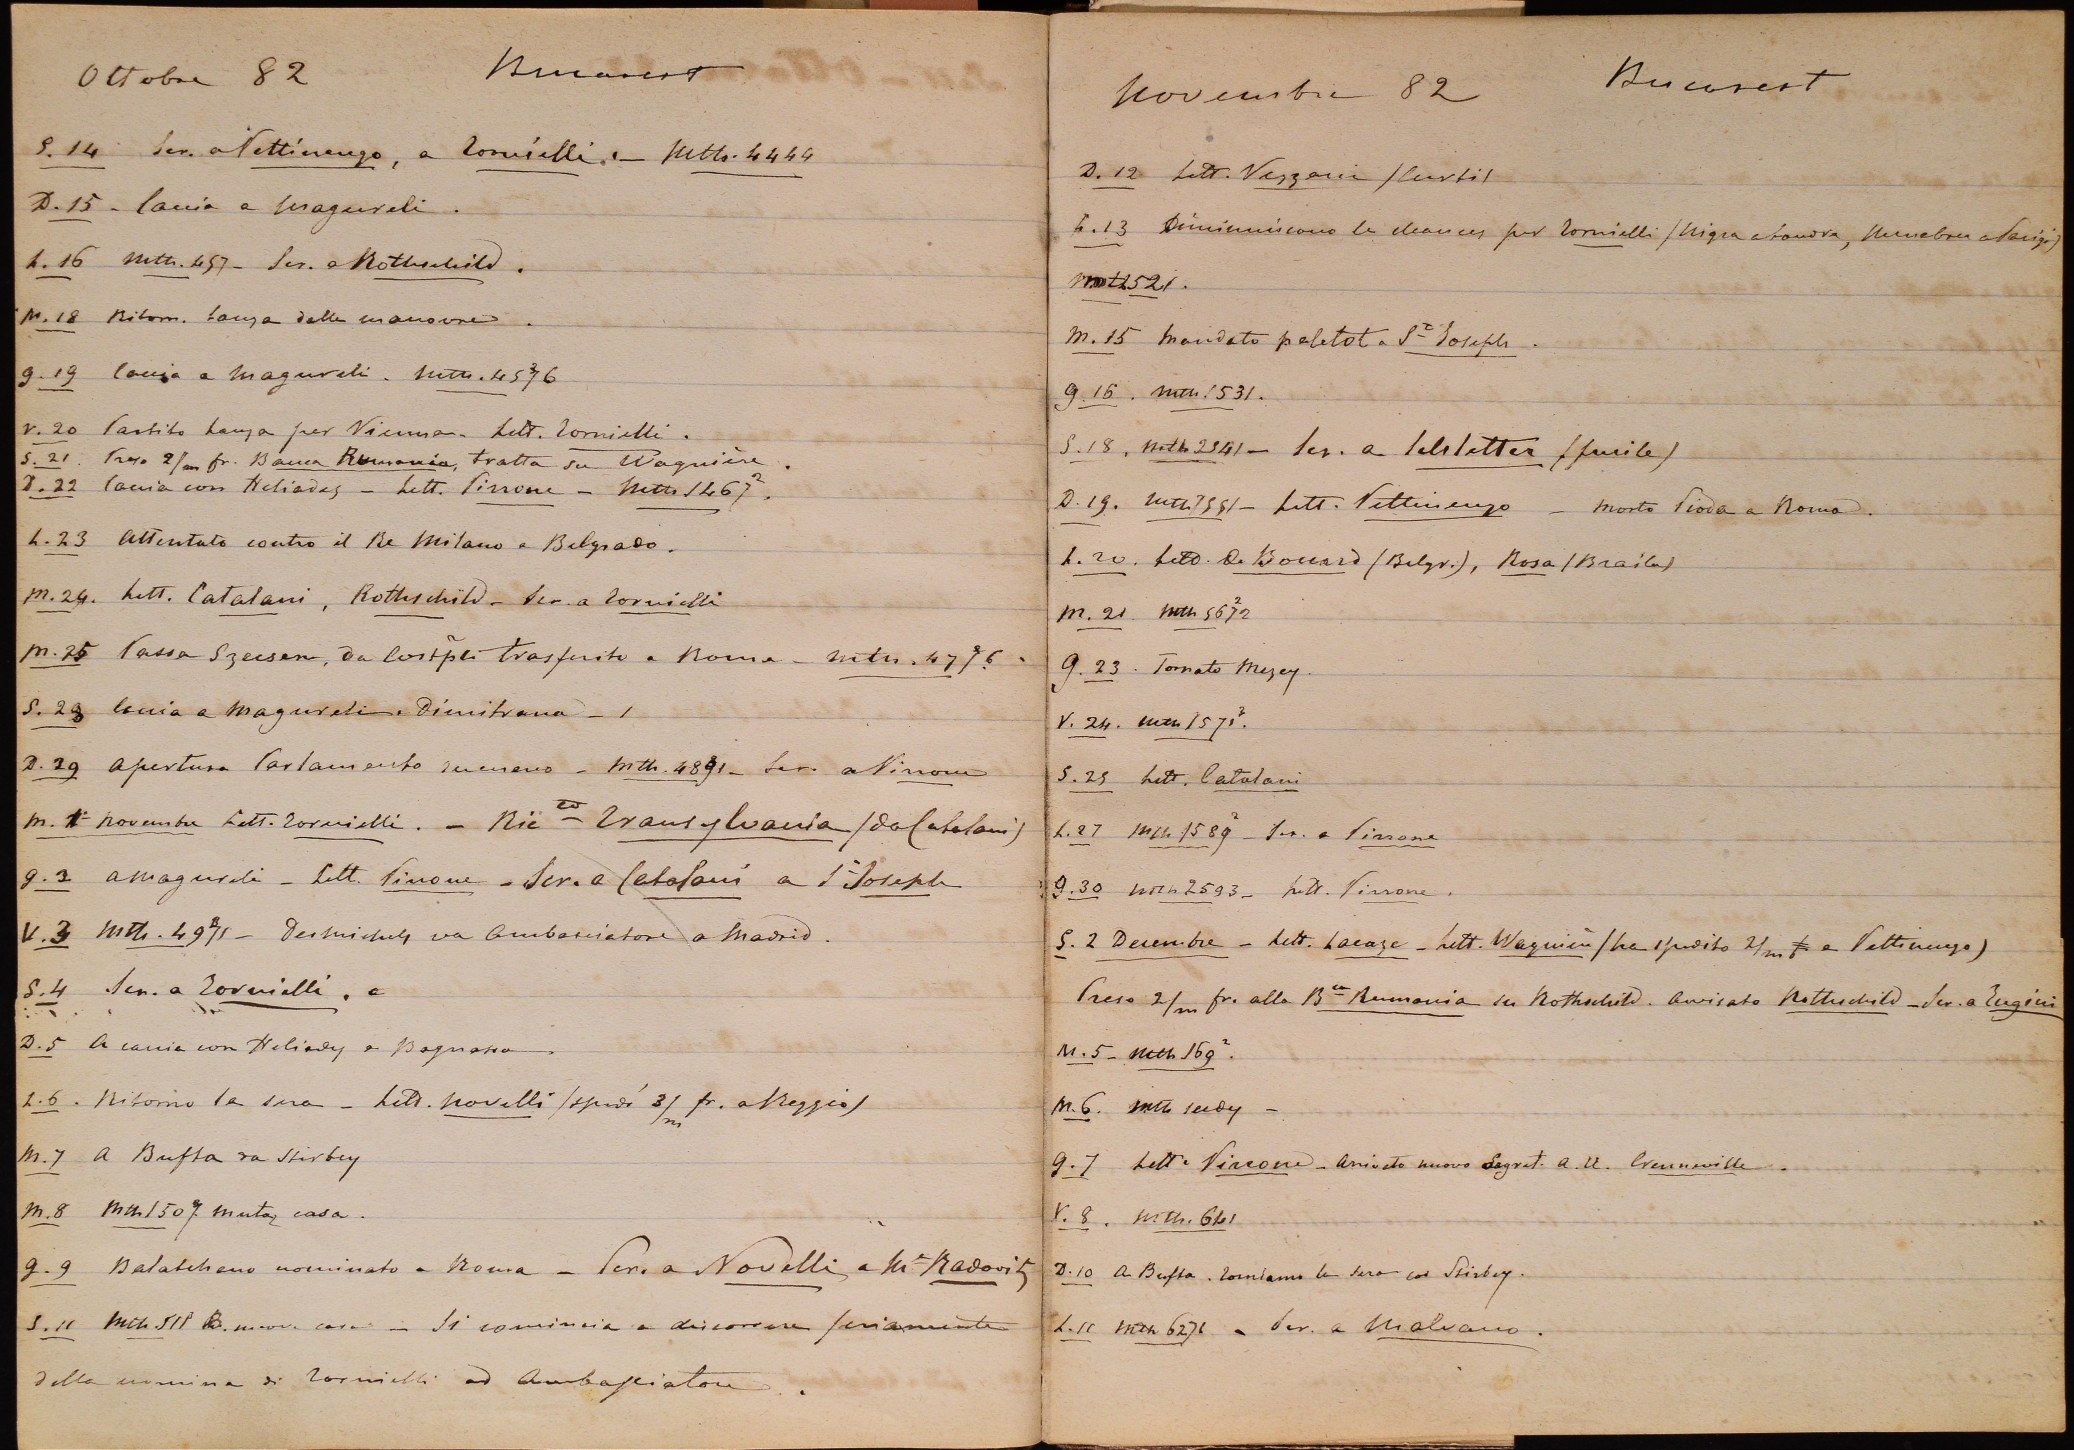 Ottobre 82 Bucarest
S. 14 Scr. a Pettinengo, a Tornielli. — Mth. 4444
D. 15 - Caccia a Magureli.
L. 16 Mth. 457 - Scr. a Rothschild.
M. 18 Ritorn. Lanza dalle manovre.
G. 19 Caccia a Magureli. Mth.
V. 20 Partito Lanza per Vienna. Lett. Tornielli.
S. 21. Preso 2/m fr. Banca Rumania, tratta su Wagnière.
D. 22 Caccia con Heliades - Lett. Pirrone - Mth
L. 23 Attentato contro il Re Milano a Belgrado.
M. 24. Lett. Catalani, Rothschild - Scr. a Tornielli
M. 25 Passa Szecsen, da Costpli trasferito a Roma - Mth.
S. 28 Caccia a Magureli. Dimitrana - 1
D. 29 Apertura Parlamento rumeno - Mth. - Scr. a Pirrone
M. 1° Novembre Lett. Tornielli. - Ric.to Transylvania (da Catalani)
G. 2 a Magureli - Lett. Pirrone - Scr. a Catalani a St Joseph
V. 3 Mth. - Desmichels va Ambasciatore a Madrid.
S. 4 Scr. a Tornielli. e
D. 5 A caccia con Heliady a
L. 6. Ritorno la sera - Lett. Novelli (spedì 3/m fr. a Reggio)
M. 7 A Bufta da Stirbey
M. 8 Mth 1507 mutaz casa.
G. 9 Balatcheano nominato a Roma - Scr. a Novelli, a Mr Radovitz
S. 11 Mth. 511 nuova casa - Si comincia a discorrere seriamente
della nomina di Tornielli ad Ambasciatore.
Novembre 82 Bucarest
D. 12 Lett. Vezzani (Curti)
L. 13 Diminuiscono le chances per Tornielli (Nigra a Londra, Menabrea a Parigi)
Mth 521.
M. 15 Mandato paletot a St Joseph.
G. 16. Mth. 1531.
S. 18. Mth 2541 - Scr. a (fucile)
D. 19. Mth - Lett. Pettinengo - Morto Pioda a Roma.
L. 20. Lett. De Bouard (Belgr.), Rosa (Braila)
M. 21 Mth
G. 23. Tornato Mezey.
V. 24. Mth
S. 25 Lett. Catalani
L. 27 Mth 1589² - Scr. a Pirrone
G. 30 Mth 2593 - Lett. Pirrone.
S. 2 Decembre - Lett. Lacaze - Lett. Wagnière (ha spedito 2/m f a Pettinengo)
Preso 2/m fr. alla Bca Rumania su Rothschild. Avvisato Rothschild - Scr. a Eugini
M. 5 - Mth 169².
M. 6. Mth
G. 7 Lett. Pirrone - Arrivato nuovo Segret. A. U. Crenneville.
V. 8. Mth. 641
D. 10 A Bufta. Torniamo la sera con Stirbey.
L. 11 Mth - Scr. a Malvano.